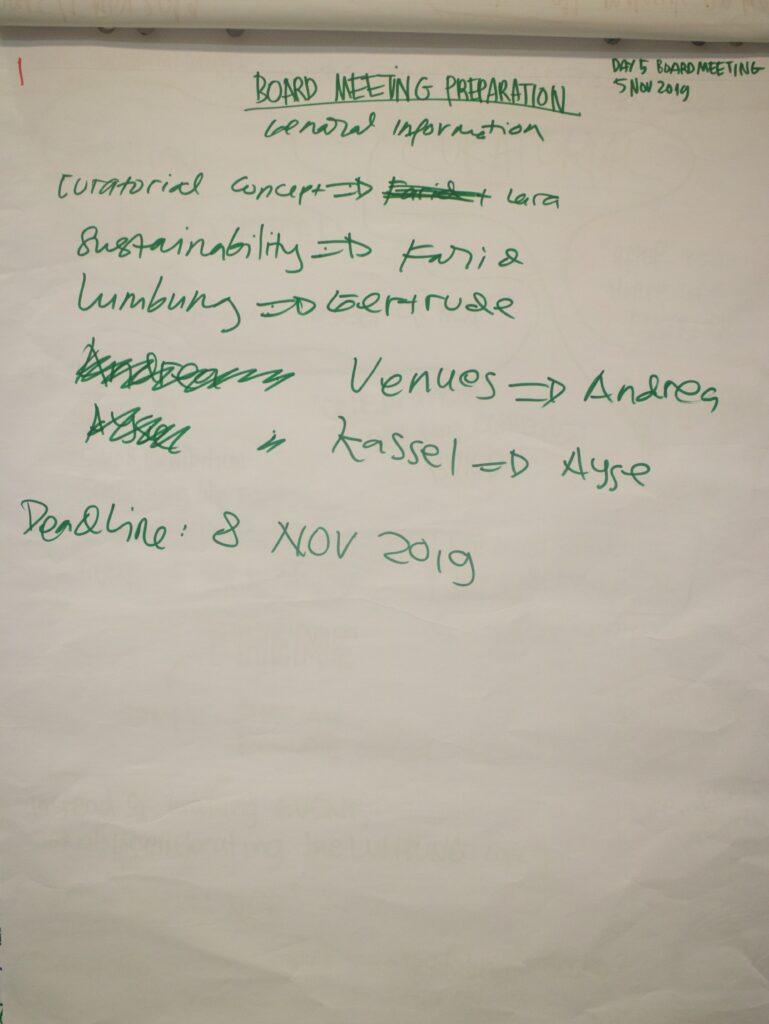 1
DAY 5 BOARD MEETING
5 NOV 2019
BOARD MEETING PREPARATION
General Information
Curatorial Concept ⇒ Lara
Sustainability ⇒ Farid
Lumbung ⇒ Gertrude
Venues ⇒ Andrea
Kassel ⇒ Ayse
Deadline: 8 NOV 2019